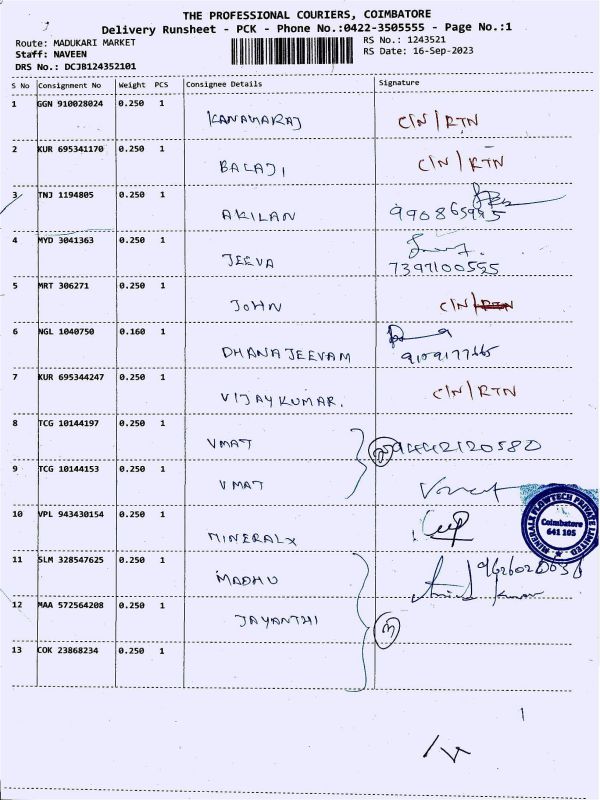 THE PROFESSIONAL COURIERS, COIMBATORE
Delivery Runsheet - PCK - Phone No.:0422-3505555 - Page No.:1
Route: MADUKARI MARKET
RS No.: 1243521
Staff: NAVEEN
RS Date: 16-Sep-2023
DRS No.: DCJB124352101
S No Consignment No Weight PCS Consignee Details Signature
1 GGN 910028024 0.250 1 KANAHARAJ C/N/RTN
2 KUR 695341170 0.250 1 BALAJI C/N/RTN
3 TNJ 1194805 0.250 1 AKILAN
4 MYD 3041363 0.250 1 JEEVA 7397100555
5 MRT 306271 0.250 1 JOHN C/N/RTN
6 NGL 1040750 0.160 1 DHANAJEEVAM
7 KUR 695344247 0.250 1 VIJAYKUMAR. C/N/RTN
8 TCG 10144197 0.250 1 VMAT 9442120580
9 TCG 10144153 0.250 1 VMAT
10 VPL 943430154 0.250 1 MINERALX
Coimbatore
641 105
11 SLM 328547625 0.250 1 MADHU
12 MAA 572564208 0.250 1 JAYANTHI 3
13 COK 23868234 0.250 1